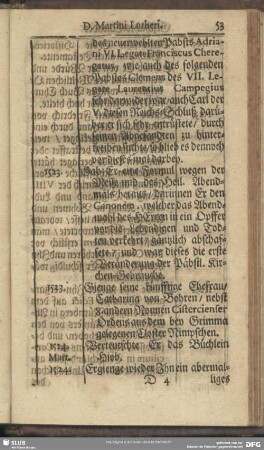 D. Martini Lutheri. 53
des neuerwehlten Pabsts Adria-
ni VI. Legate Franciscus Chere-
gatus, wie auch des folgenden
Pabstes Clemens des VII. Le-
gate Laurentius Campegius
sehr darwider war, auch Carl der
V. diesen Reichs-Schluß
er sich sehr entrüstete, durch
zu hinter-
treiben suchte, so blieb es dennoch
vor dieses mal darbey.
1523. Gab Er eine Formul wegen der
Meß und des Heil. Abend-
mals heraus, darinnen Er den
Canonem, welcher das Abend-
mahl des HErrn in ein Opffer
vor die Lebendigen und Tod-
ten verkehrt, gäntzlich abschaf-
fete, und war dieses die erste
Veränderung der Päbstl. Kir-
chen-Gebräuche.
1523. Gienge seine künfftige Ehefrau
Catharina von Bohren, nebst
8 andern Nonnen Cistercienser
Ordens aus dem bey Grimma
gelegenen Closter Nimpschen.
1524. Verteutschte Er das Büchlein
Mart. Hiob.
1524. Ergienge wieder Ihn ein abermal-
D 4 liges
SLUB